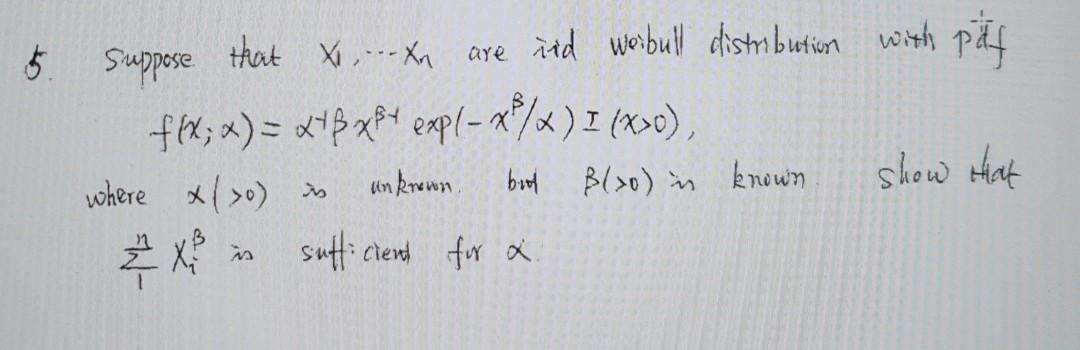 5. Suppose that X₁, ... Xn are iid weibull distribution with pdf
f(x; α) = α⁻¹βx^β⁻¹ exp(-x^β/α) I (x>0),
where α(>0) is unknown. but β(>0) is known. show that
Σ₁ⁿ Xᵢ^β is sufficient for α.